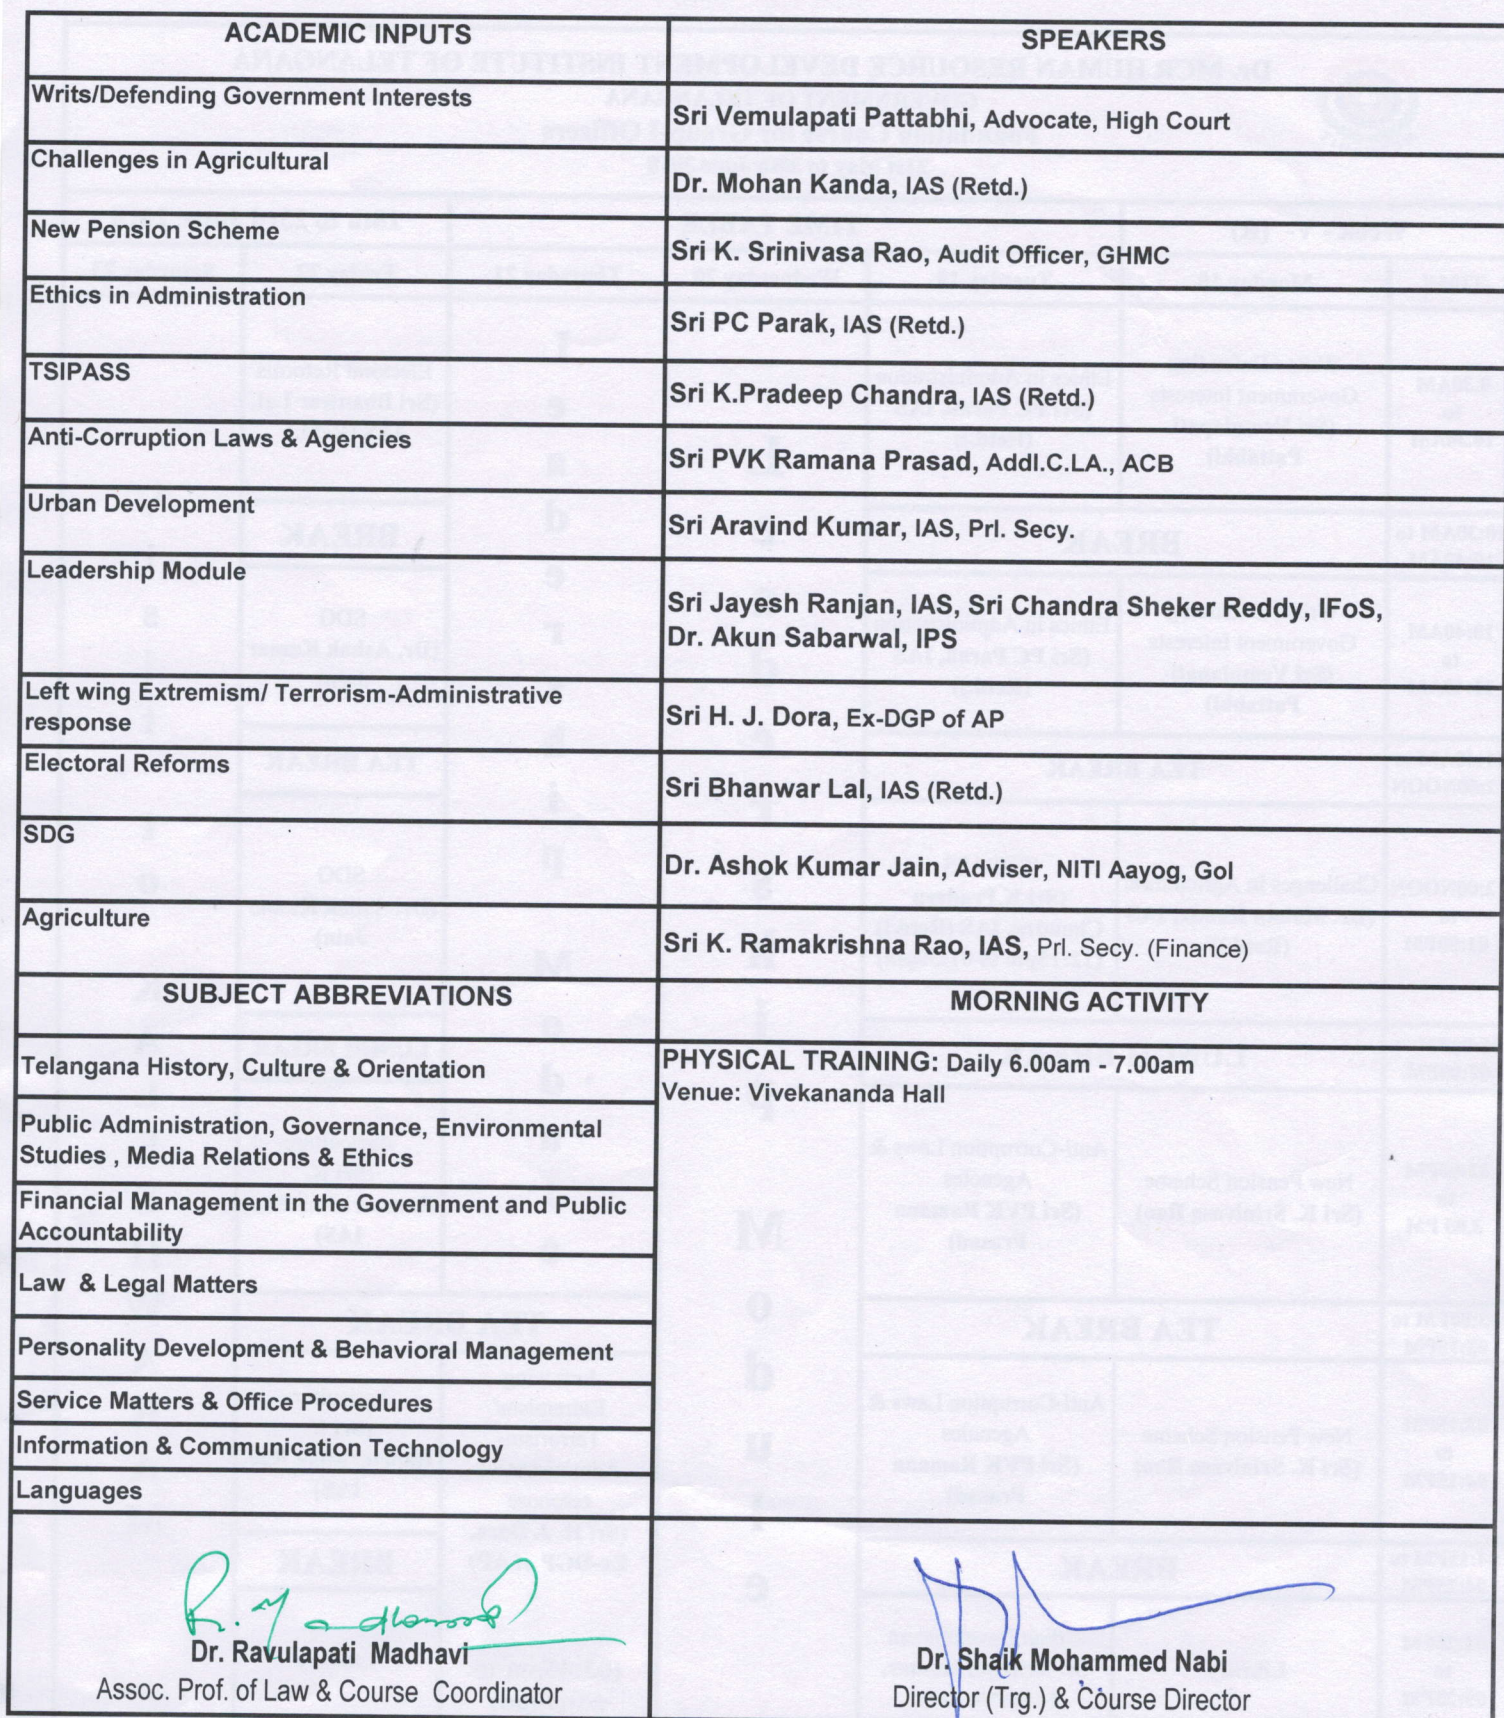 ACADEMIC INPUTS
SPEAKERS
Writs/Defending Government Interests
Sri Vemulapati Pattabhi, Advocate, High Court
Challenges in Agricultural
Dr. Mohan Kanda, IAS (Retd.)
New Pension Scheme
Sri K. Srinivasa Rao, Audit Officer, GHMC
Ethics in Administration
Sri PC Parak, IAS (Retd.)
TSIPASS
Sri K.Pradeep Chandra, IAS (Retd.)
Anti-Corruption Laws & Agencies
Sri PVK Ramana Prasad, Addl.C.LA., ACB
Urban Development
Sri Aravind Kumar, IAS, Prl. Secy.
Leadership Module
Sri Jayesh Ranjan, IAS, Sri Chandra Sheker Reddy, IFoS,
Dr. Akun Sabarwal, IPS
Left wing Extremism/ Terrorism-Administrative
response
Sri H. J. Dora, Ex-DGP of AP
Electoral Reforms
Sri Bhanwar Lal, IAS (Retd.)
SDG
Dr. Ashok Kumar Jain, Adviser, NITI Aayog, GoI
Agriculture
Sri K. Ramakrishna Rao, IAS, Prl. Secy. (Finance)
SUBJECT ABBREVIATIONS
MORNING ACTIVITY
Telangana History, Culture & Orientation
PHYSICAL TRAINING: Daily 6.00am - 7.00am
Venue: Vivekananda Hall
Public Administration, Governance, Environmental
Studies , Media Relations & Ethics
Financial Management in the Government and Public
Accountability
Law & Legal Matters
Personality Development & Behavioral Management
Service Matters & Office Procedures
Information & Communication Technology
Languages
Dr. Ravulapati Madhavi
Assoc. Prof. of Law & Course Coordinator
Dr. Shaik Mohammed Nabi
Director (Trg.) & Course Director